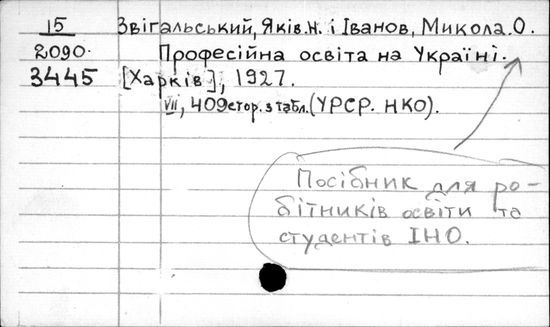 15 Звігальський, Яків.Н. і Іванов, Микола.О.
2090. Професійна освіта на Україні.
3445 [Харків], 1927.
VII, 409стор. з табл. (УРСР. НКО).
Посібник для ро-
бітників освіти та
студентів ІНО.